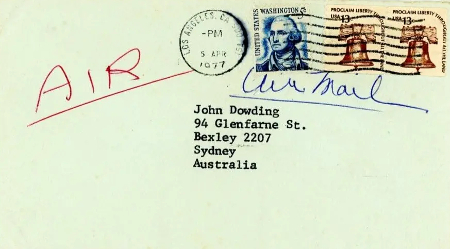 LOS ANGELES, CA
-PM
5 APR
1977
UNITED STATES
WASHINGTON
5c
PROCLAIM LIBERTY THROUGHOUT ALL THE LAND
USA 13c
PROCLAIM LIBERTY THROUGHOUT ALL THE LAND
USA 13c
AIR
Air Mail
John Dowding
94 Glenfarne St.
Bexley 2207
Sydney
Australia